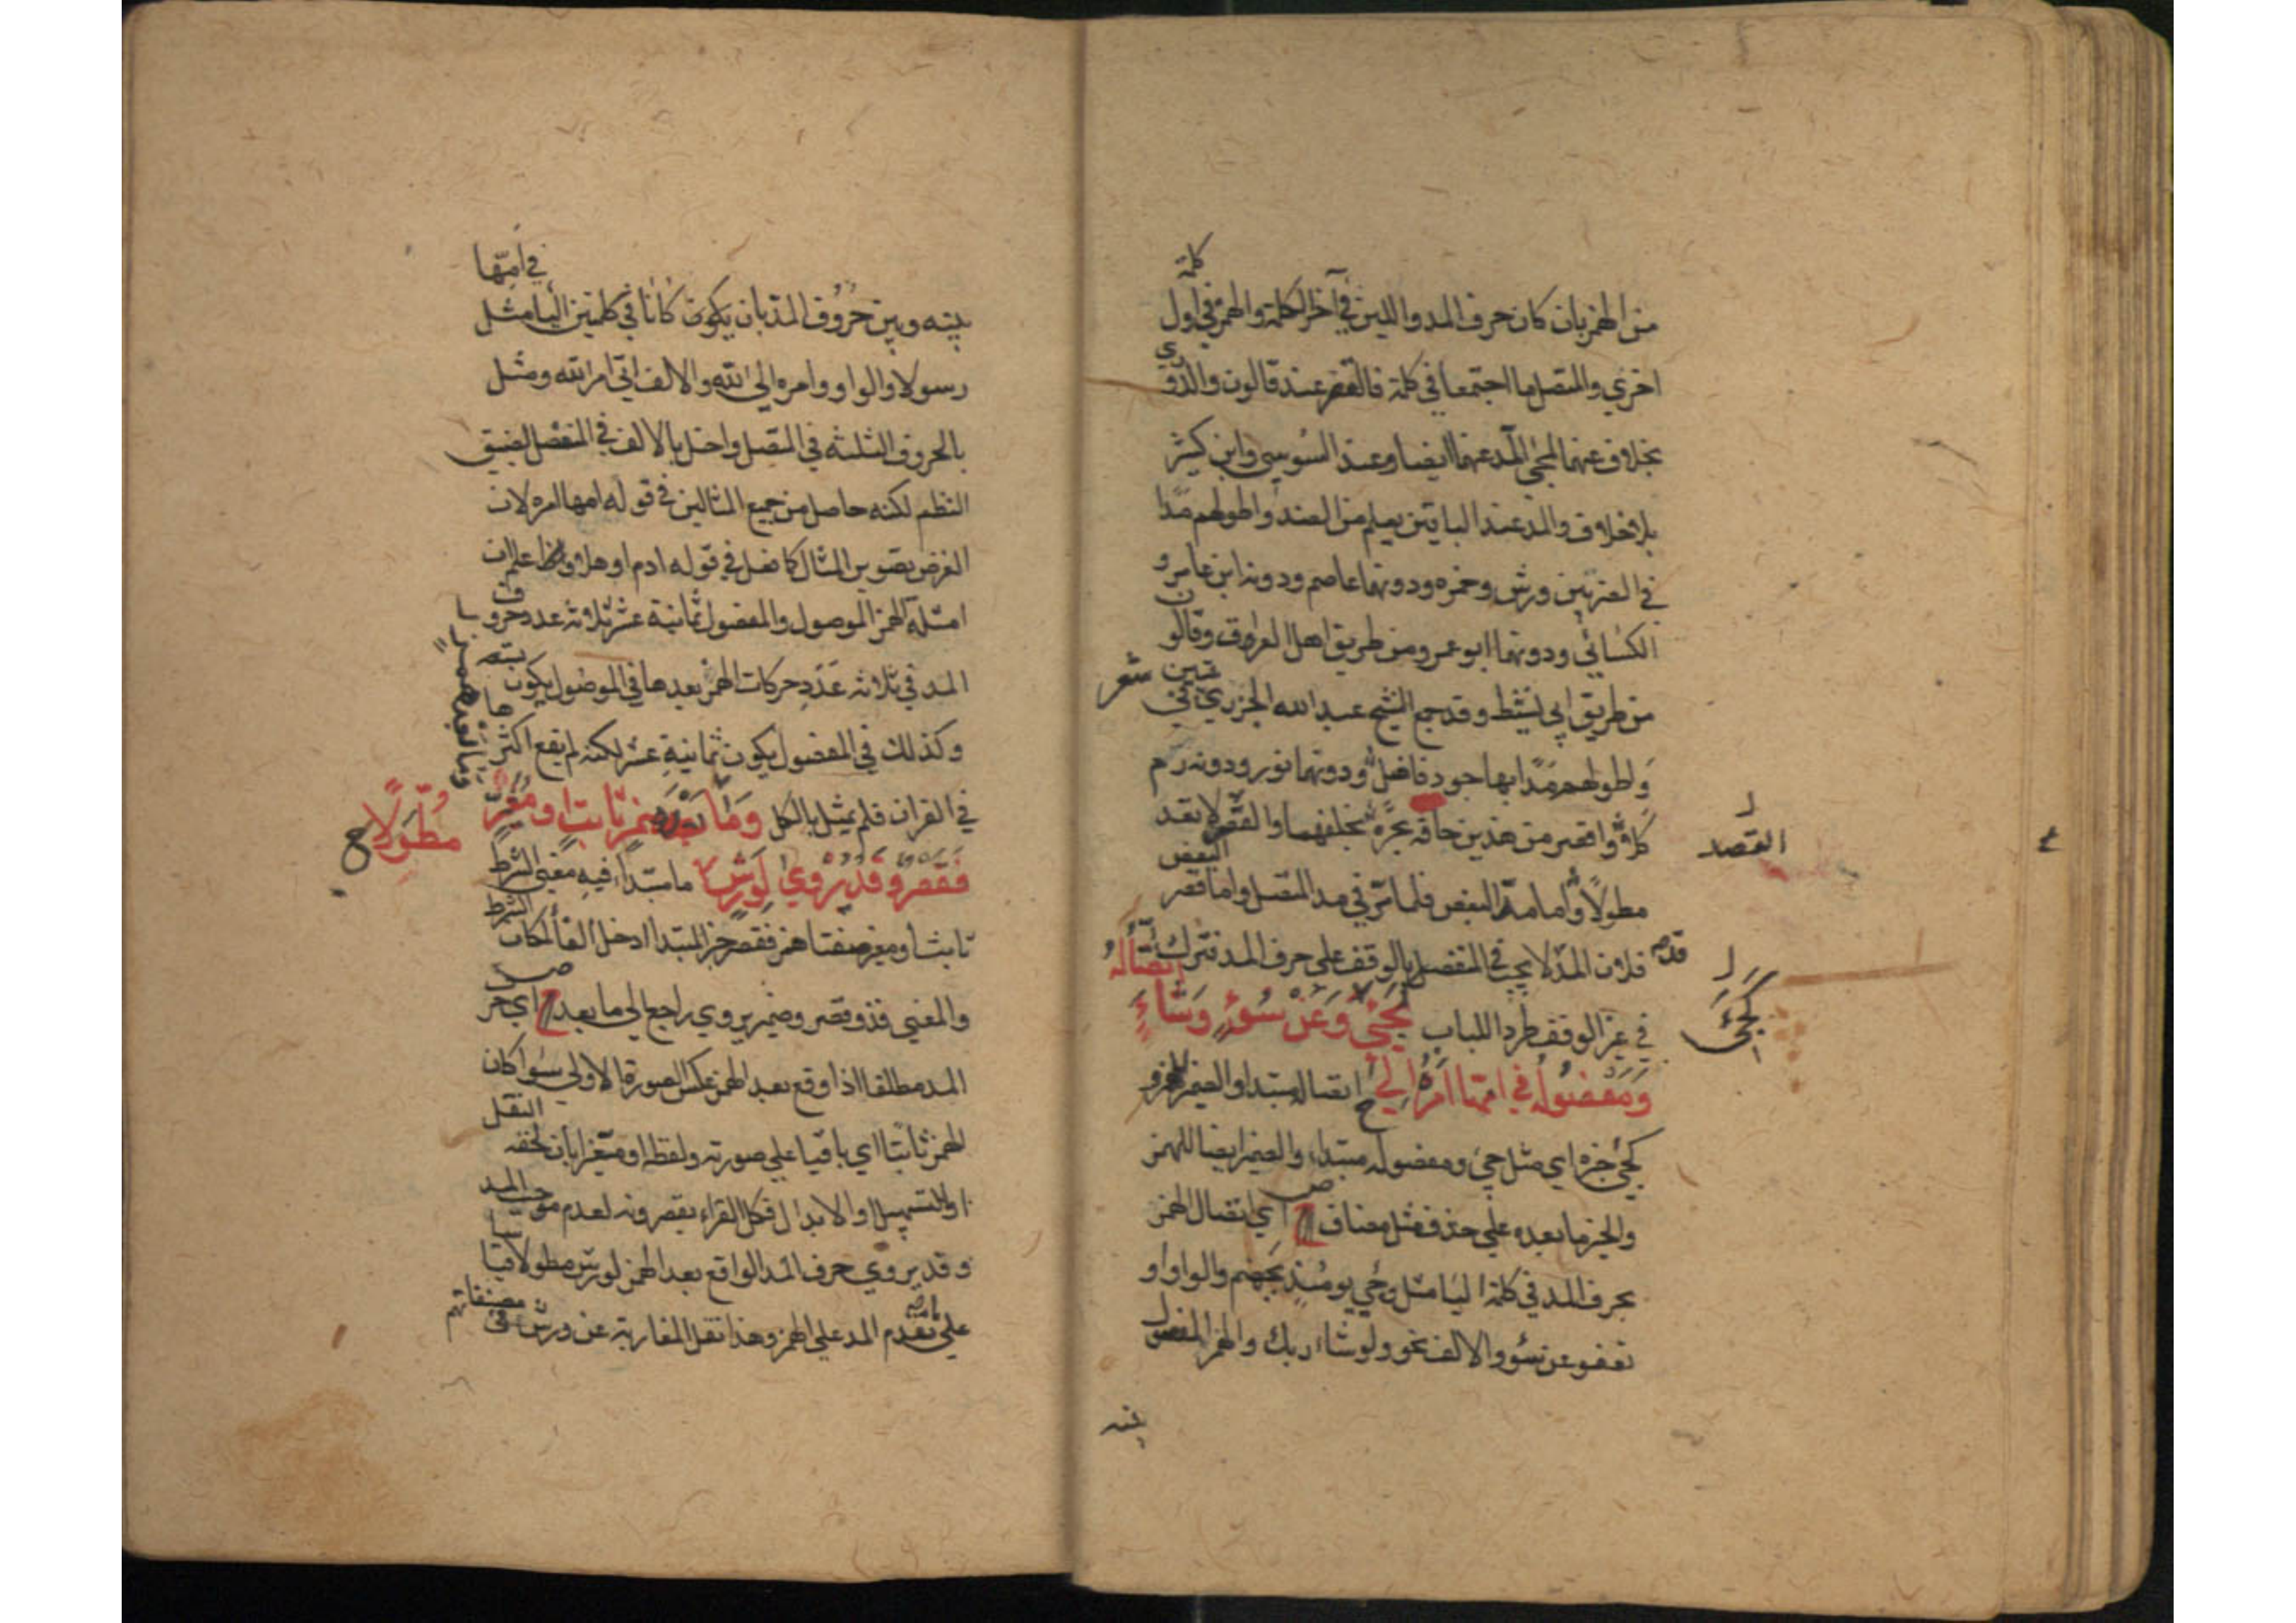 من الهمز بان كان حرف المد واللين في آخر الكلمة والهمز في اول
كلمة
اخري والمتصل ما اجتمعا في كلمة فالقصر عند قالون والدوري
بخلاف عنهما لمجئ المد عنهما ايضا وعند السوسي وابن كثير
بلا خلاف والمد عند الباقين يعلم من الضد واطولهم مدا
في الضربين ورش وحمزه ودونهما عاصم ودونه ابن عامر و
الكسائي ودونهما ابو عمرو من طريق اهل العراق وقالون
من طريق ابي نشيط وقد جمع الشيخ عبد الله الجزري في
بيتين شعر
واطولهم مدا بها جود فاضل ودونهما نور ودونه رم
كلا واقصر من هذين حافه بجره بخلفهما والقصر لا تعد
القصد
مطولا واما مد البعض فلما مر في مد المتصل واما قصر
البعض
فلان المد لا يجب في المنفصل بالوقف على حرف المد فترك
قدم
في غير الوقف طردا للباب كجئ وعن سوء وشاء
اتصاله
كجئ
ومفصوله في امها امره الي اتصاله مبتدا والضمير للهمز و
كجئ خبره اي مثل جئ ومفصوله مبتدا، والضمير ايضا للهمز
والخبر ما بعده علي حذف مثل مضاف ص اي اتصال الهمز
بحرف المد في كلمة اليا مثل وجئ يومئذ بجهنم والواو او
تعفو عن سوء والالف نحو ولو شاء ربك والهمز المفصول
بينه
في امها
بينه وبين حروف المد بان يكون كانا في كلمتين اليا مثل
رسولا والواو وامره الي الله والالف اتي امر الله ومثل
بالحروف الثلثه في المتصل واخل بالالف في المنفصل لضيق
النظم لكنه حاصل من جميع المثالين في قوله امها امره لان
الغرض تصوير المثال كما فعل في قوله ادم اوهلا واعلم ان
امثلة الهمز الموصول والمفصول ثمانية عشر ثلاثه عدد حروف
المد في ثلاثه عدد حركات الهمز بعدها في الموصول يكون
وكذلك في المفصول يكون ثمانية عشر لكنه لم يقع اكثرها
في القران فلم يمثل بالكل وما بعد همز ثابت او مغير
وما بعد همز
فقصر وقد يروي لورش مطولا ما مبتدا، فيه معني الشرط
ثابت او مغير صفتا همز فقصر خبر المبتدا ادخل الفا لمكان
الشرط
والمعني فذو قصر وضمير يروي راجع الي ما بعد ص اي حر
المد مطلقا اذا وقع بعد الهمز عكس الصورة الاولي سوا كان
الهمز ثابتا اي باقيا علي صورته ولفظه او متغيرا بان لحقه
النقل
او التسهيل او الابدال فكل القراء يقصرونه لعدم موجب المد
وقد يروي حرف المد الواقع بعد الهمز لورش مطولا قياسا
علي تقدم المد علي الهمز وهذا نقل المغاربة عن ورش في
مصنفاتهم